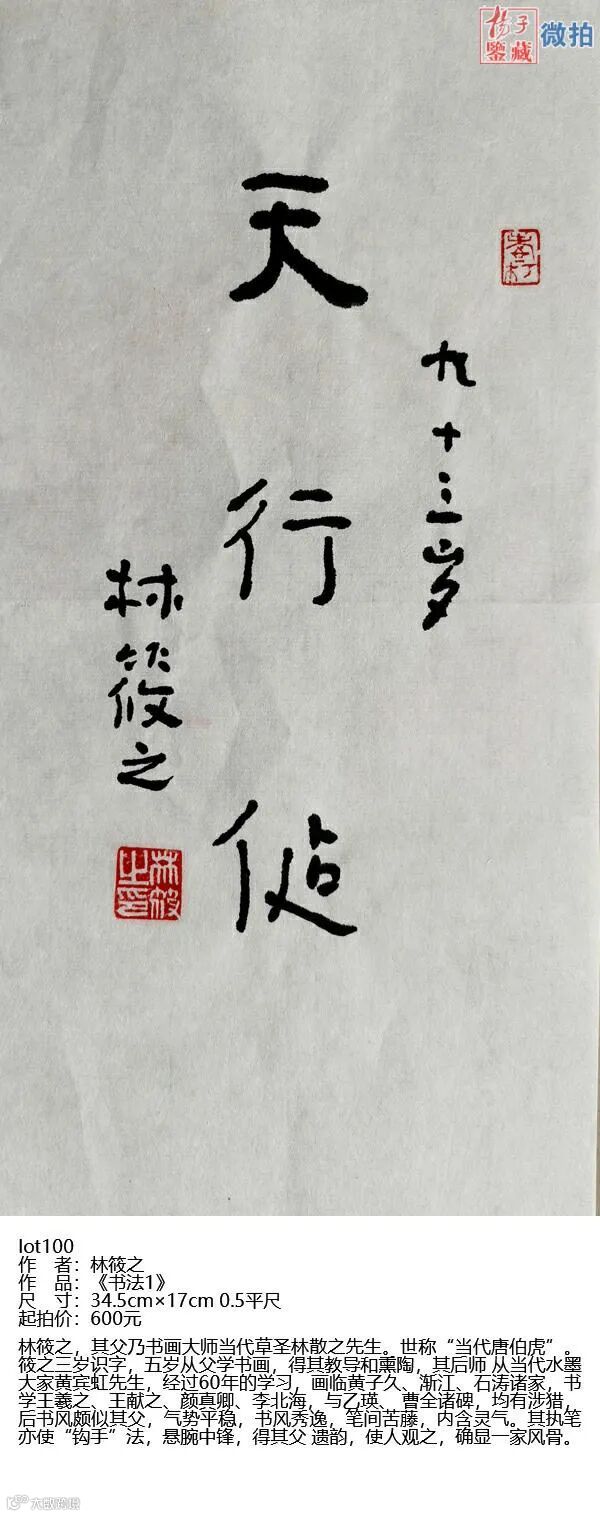 揚子
鑒藏
微拍
九十三岁
天行
林筱之
林筱之印
lot100
作 者：林筱之
作 品：《书法1》
尺 寸：34.5cm×17cm 0.5平尺
起拍价：600元
林筱之，其父乃书画大师当代草圣林散之先生。世称“当代唐伯虎”。
筱之三岁识字，五岁从父学书画，得其教导和熏陶，其后师 从当代水墨
大家黄宾虹先生，经过60年的学习，画临黄子久、渐江、石涛诸家，书
学王羲之、王献之、颜真卿、李北海，与乙瑛、曹全诸碑，均有涉猎，
后书风颇似其父，气势平稳，书风秀逸，笔间苦藤，内含灵气。其执笔
亦使“钩手”法，悬腕中锋，得其父 遗韵，使人观之，确显一家风骨。
大数跨境